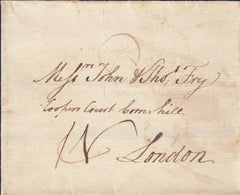 Messrs John & Thos Fry
Coopers Court Cornhill
London